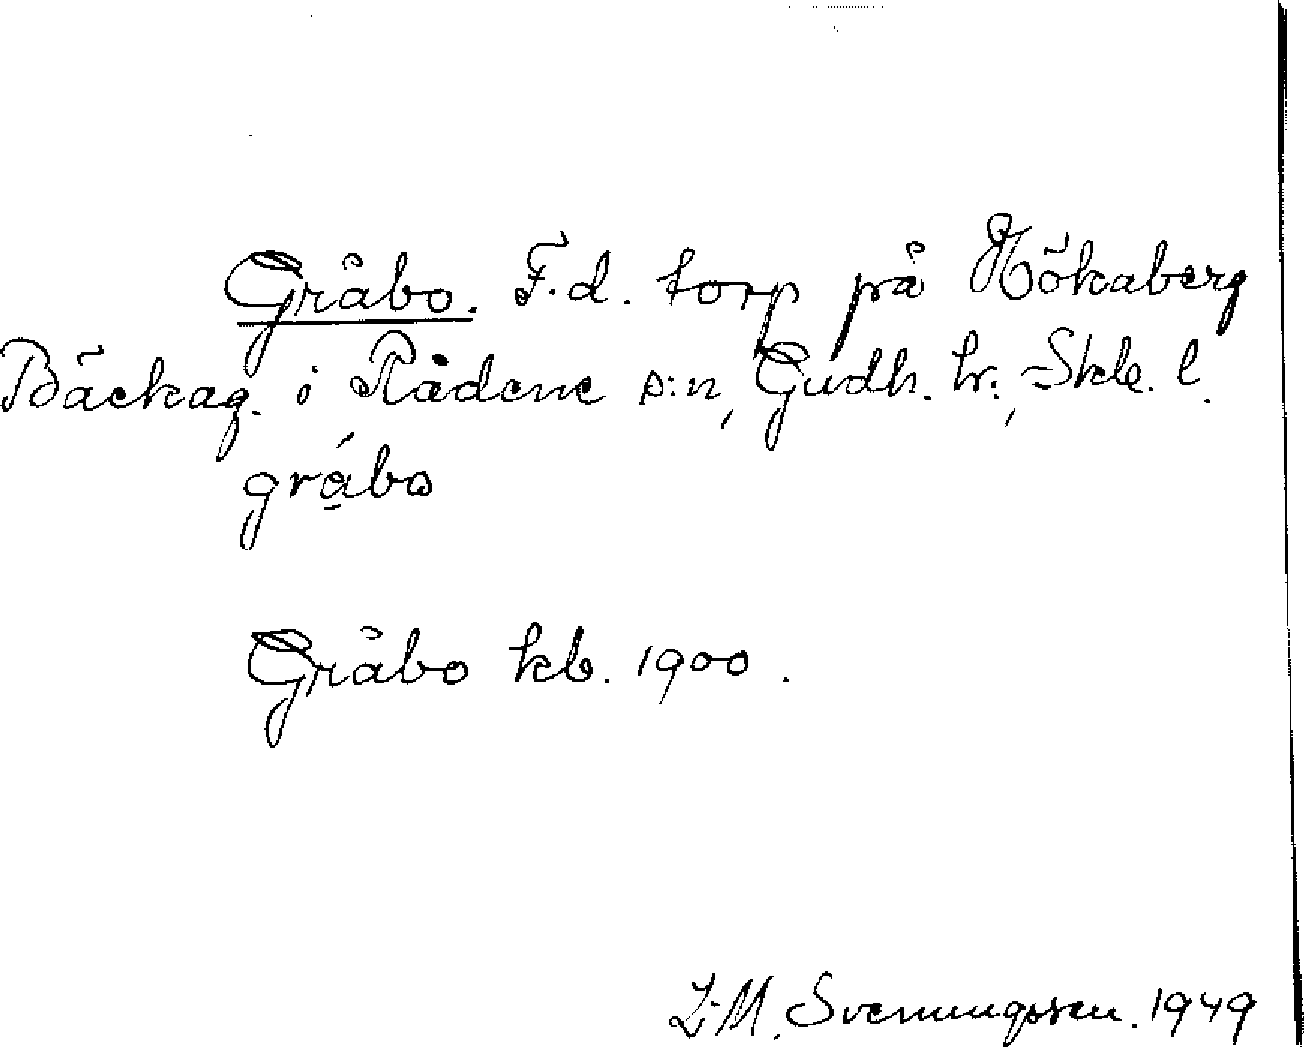 Gråbo. F.d. torp på Hökaberg
Bäckag. i Rådene s:n, Gudh. hr., Skb. l.
gråbo
Gråbo kb. 1900.
I-M. Svenungsson. 1949